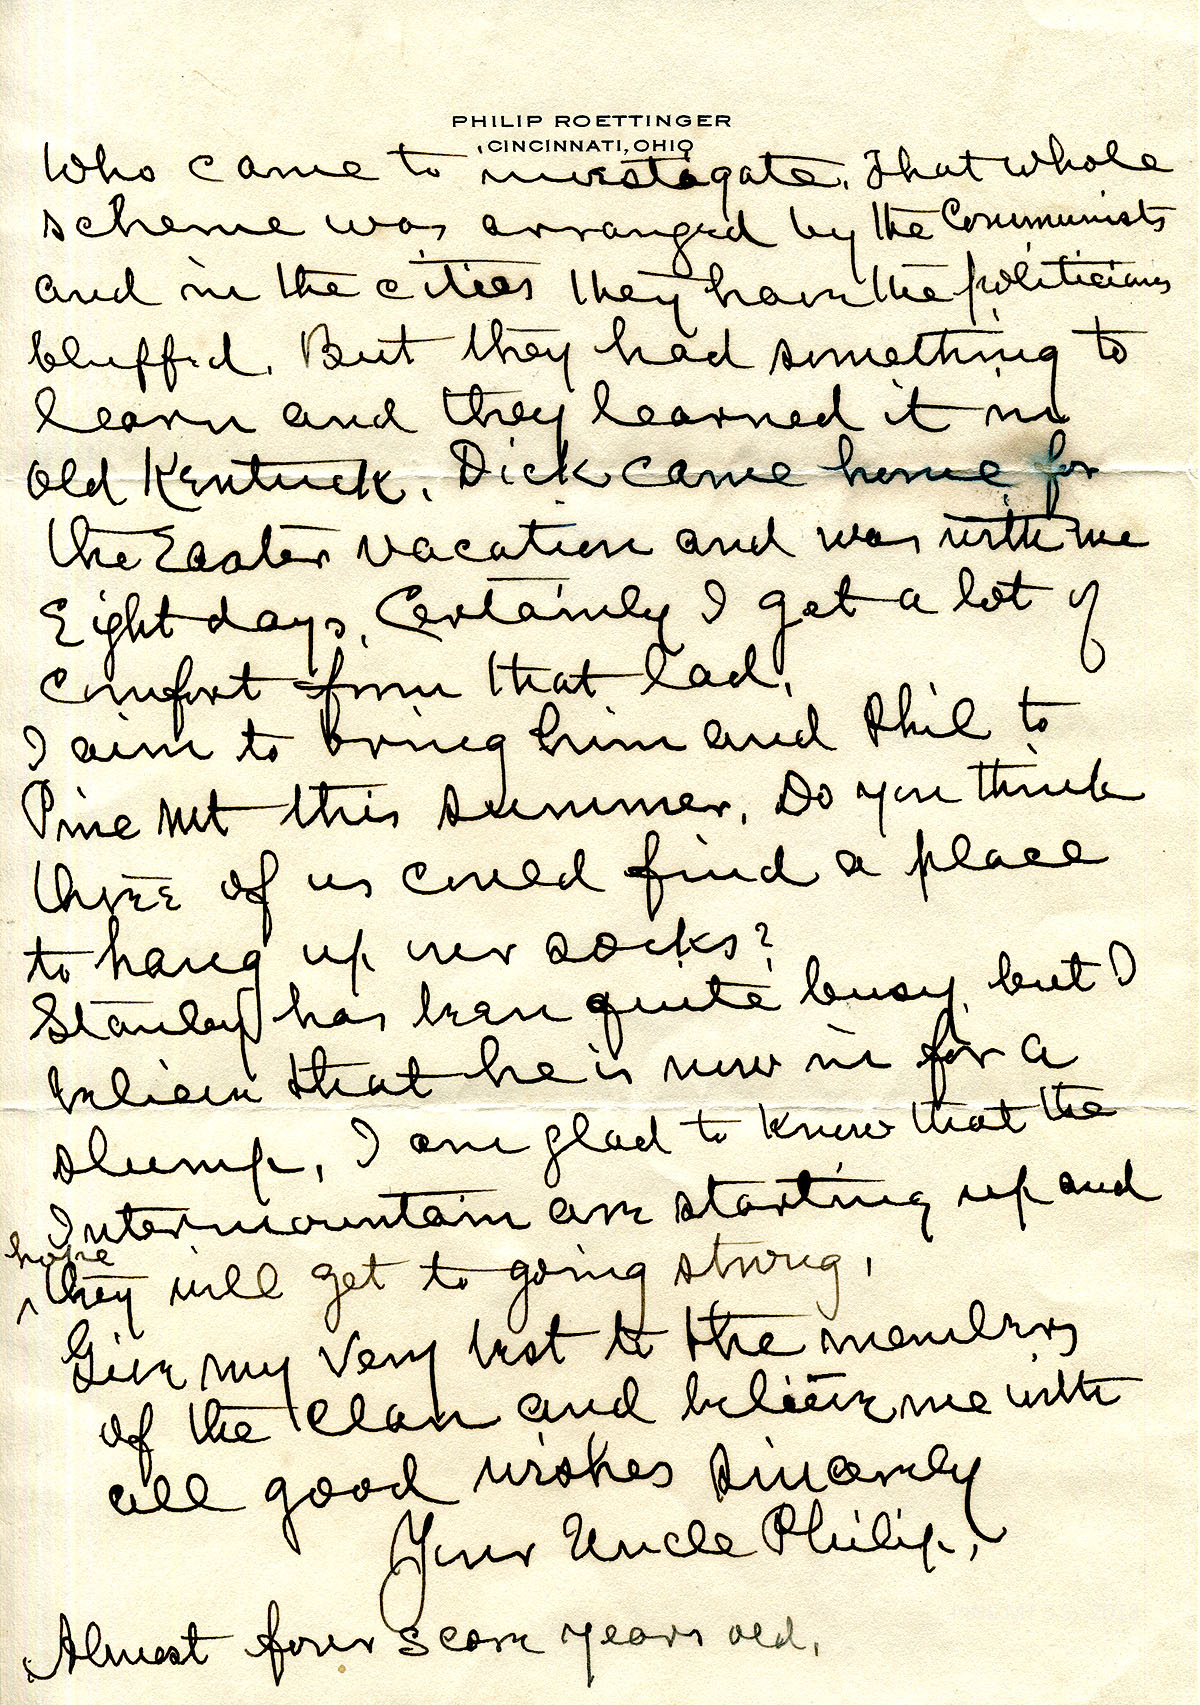 PHILIP ROETTINGER
CINCINNATI, OHIO
Who came to investigate. That whole
scheme was arranged by the Communists
and in the cities they have the politicians
bluffed. But they had something to
learn and they learned it in
old Kentuck. Dick came home for
the Easter vacation and was with me
Eight days. Certainly I get a lot of
comfort from that lad.
I aim to bring him and Phil to
Pine Mt this summer. Do you think
three of us could find a place
to hang up our socks?
Stanley has been quite busy, but I
believe that he is now in for a
slump. I am glad to know that the
Intermountain are starting up and
hope
^ they will get to going strong.
Give my very best to the members
of the clan and believe me with
all good wishes sincerely
Your Uncle Philip.
Almost four score years old.